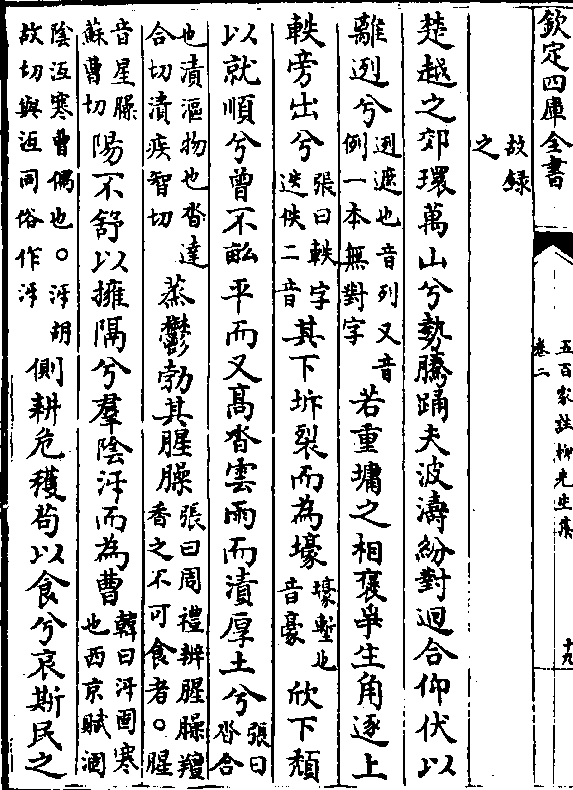 欽定四庫全書
五百家註柳先生集
卷二
十九
故録
之
楚越之郊環萬山兮勢騰踊夫波濤紛對迴合仰伏以
離迾兮迾遮也音列又音例一本無對字若重墉之相褒爭生角逐上
軼旁出兮張曰軼字迭佚二音其下坼裂而為壕壕塹也音豪欣下頹
以就順兮曾不畝平而又高沓雲雨而漬厚土兮張曰沓合
也漬漚物也沓達合切漬疾智切蒸鬱勃其腥臊張曰周禮辨腥臊羶香之不可食者。腥
音星臊蘇曹切陽不舒以擁隔兮羣陰沍而為曹韓曰沍固寒也西京賦涸
陰沍寒曹偶也。沍胡故切與冱同俗作沍側耕危穫苟以食兮哀斯民之